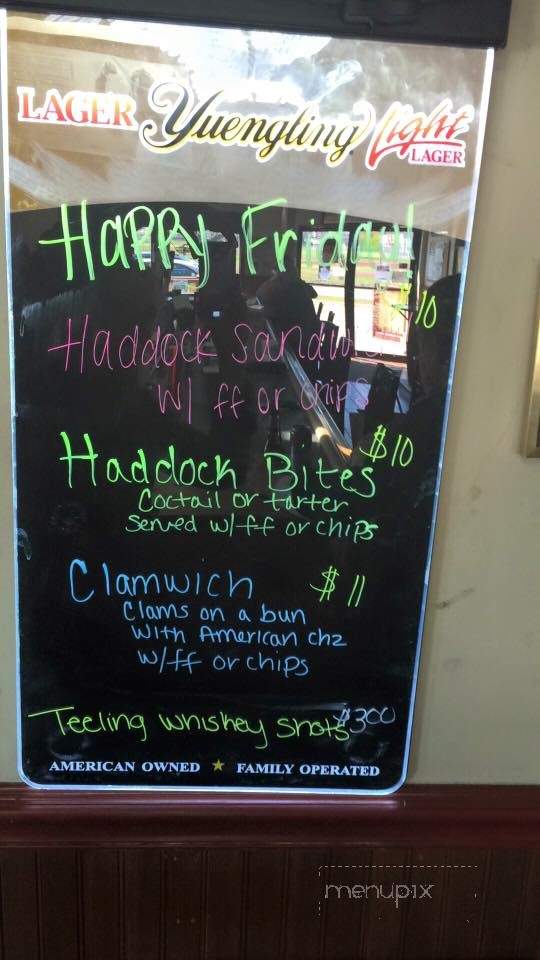 LAGER Yuengling Light LAGER
Happy Friday!
$10
Haddock Sandwich
w/ ff or chips
$10
Haddock Bites
Coctail or tarter
Served w/ff or chips
Clamwich $11
Clams on a bun
With American chz
w/ff or chips
Teeling whiskey shots $300
AMERICAN OWNED ★ FAMILY OPERATED
menupix